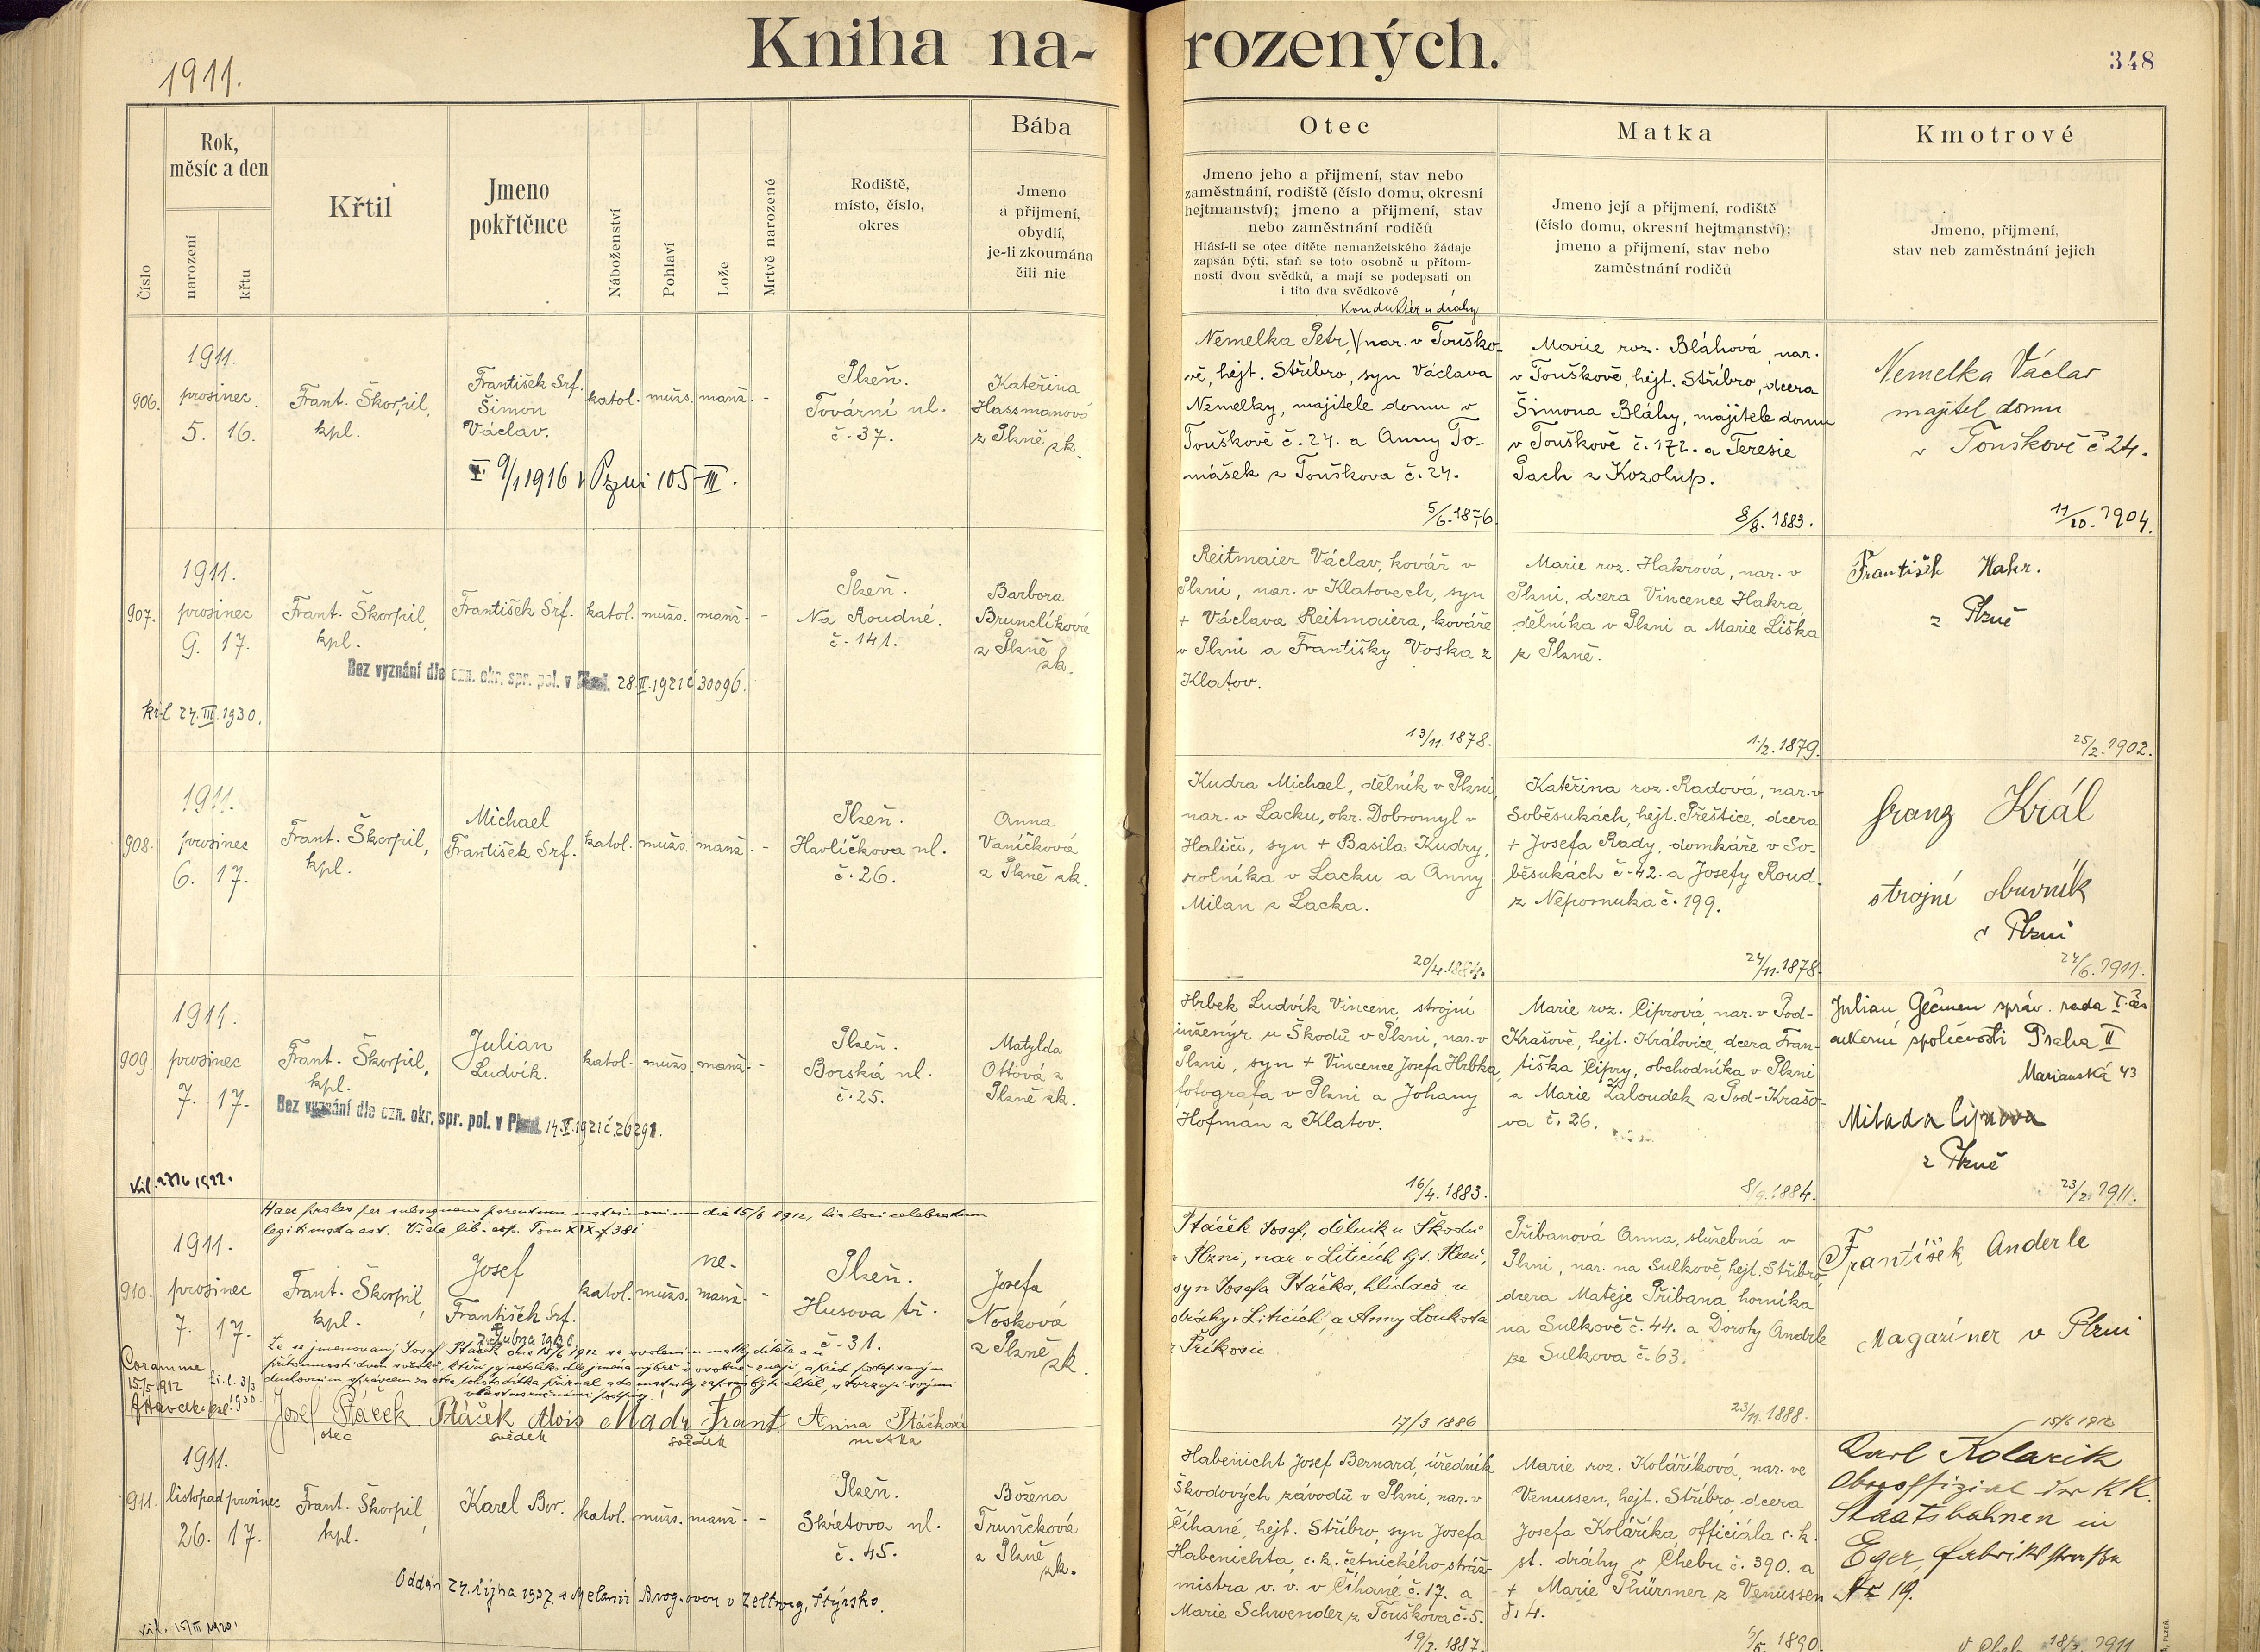 Kniha na-rozených.
1911.
348
Číslo
Rok, měsíc a den
narození
křtu
Křtil
Jmeno pokřtěnce
Náboženství
Pohlaví
Lože
Mrtvě narozené
Rodiště, místo, číslo, okres
Bába
Jmeno a přijmení, obydlí, je-li zkoumána čili nic
Otec
Jmeno jeho a přijmení, stav nebo
zaměstnání, rodiště (číslo domu, okresní
hejtmanství); jmeno a přijmení, stav
nebo zaměstnání rodičů
Hlásí-li se otec dítěte nemanželského žádaje
zapsán býti, staň se toto osobně u přítom-
nosti dvou svědků, a mají se podepsati on
i tito dva svědkové
Matka
Jmeno její a přijmení, rodiště
(číslo domu, okresní hejtmanství);
jmeno a přijmení, stav nebo
zaměstnání rodičů
Kmotrové
Jmeno, přijmení,
stav neb zaměstnání jejich
906.
1911.
prosinec
5. 16.
Frant. Škorpil,
kpl.
František Srf.
Šimon
Václav.
katol. mužs. manž. -
Plzeň.
Tovární ul.
č. 37.
Kateřina
Hassmanová
z Plzně zk.
9/1 1916 v Plzni 105-III.
Konduktér u dráhy
Nemelka Petr, nar. v Touško-
vě, hejt. Stříbro, syn Václava
Nemelky, majitele domu v
Touškově č. 24. a Anny To-
mášek z Touškova č. 24.
5/6. 1876.
Marie roz. Bláhová, nar.
v Touškově, hejt. Stříbro, dcera
Šimona Bláhy, majitele domu
v Touškově č. 172. a Teresie
Pach z Kozolup.
8/8. 1883.
Nemelka Václav
majitel domu
v Touškově č 24.
11/10. 1904.
907.
1911.
prosinec
9. 17.
Frant. Škorpil,
kpl.
František Srf.
katol. mužs. manž. -
Plzeň.
Na Roudné.
č. 141.
Barbora
Brunclíková
z Plzně
zk.
Bez vyznání dle ozn. okr. spr. pol. v Plzni 28.II.1921 č 30096.
kř.l 27.III.1930.
Reitmaier Václav, kovář v
Plzni, nar. v Klatovech, syn
+ Václava Reitmaiera, kováře
v Plzni a Františky Voska z
Klatov.
13/11. 1878.
Marie roz. Hakrová, nar. v
Plzni, dcera Vincence Hakra,
dělníka v Plzni a Marie Liška
z Plzně.
1/2. 1879.
František Hakr.
z Plzně
25/2. 1902.
908.
1911.
prosinec
6. 17.
Frant. Škorpil,
kpl.
Michael
František Srf.
katol. mužs. manž. -
Plzeň.
Havlíčkova ul.
č. 26.
Anna
Vaníčková
z Plzně zk.
Kudra Michael, dělník v Plzni,
nar. v Lacku, okr. Dobromyl v
Haliči, syn + Basila Kudry,
rolníka v Lacku a Anny
Milan z Lacka.
20/4. 1884.
Kateřina roz. Radová, nar. v
Soběsukách, hejt. Přeštice, dcera
+ Josefa Rady, domkáře v So-
běsukách č. 42. a Josefy Roud
z Nepomuka č. 199.
24/11. 1878.
Franz Král
strojní obuvník
v Plzni
24/6. 1911.
909.
1911.
prosinec
7. 17.
Frant. Škorpil,
kpl.
Julian
Ludvík.
katol. mužs. manž. -
Plzeň.
Borská ul.
č. 25.
Matylda
Ottová z
Plzně zk.
Bez vyznání dle ozn. okr. spr. pol. v Plzni 14.V.1921 č 26291.
Hrbek Ludvík Vincenc, strojní
inženýr u Škodů v Plzni, nar. v
Plzni, syn + Vincence Josefa Hrbka,
fotografa v Plzni a Johany
Hofman z Klatov.
16/4. 1883.
Marie roz. Ciprová, nar. v Pod-
Krašově, hejt. Královice, dcera Fran-
tiška Cipry, obchodníka v Plzni
a Marie Žaloudek z Pod-Krašo-
va č. 26.
8/9. 1884.
Julian Gečmen správ. rada
společnosti Praha II
Marianská 43
Milada Ciprova
z Plzně
23/2. 1911.
Haec proles per subsequens parentum matrimonium die 15/6 1912, hic loci celebratum
legitimata est.
910.
1911.
prosinec
7. 17.
Frant. Škorpil,
kpl.
Josef
František Srf.
katol. mužs. ne-manž. -
Plzeň.
Husova tř.
č. 31.
Josefa
Nosková
z Plzně
zk.
Že se jmenovaný Josef Ptáček dne 15/5 1912 se svolením matky dítěte a u
přítomnosti dvou svědků,
Coram me
15/5 1912
Josef Ptáček Ptáček Alois Madr Frant Anna Ptáčková
otec svědek svědek matka
Ptáček Josef, dělník u Škodů
v Plzni, nar. v Liticích hjt. Plzeň,
syn Josefa Ptáčka, hlídače u
dráhy v Liticích a Anny Loukota
z Příkosic
17/3 1886
Přibanová Anna, služebná v
Plzni, nar. na Sulkově, hejt. Stříbro,
dcera Matěje Přibana, horníka
na Sulkově č. 44. a Doroty Andrle
ze Sulkova č. 63.
23/11. 1888.
František Anderle
Magaziner v Plzni
15/6 1912
911.
1911.
listopad prosinec
26. 17.
Frant. Škorpil,
kpl.
Karel Bor.
katol. mužs. manž. -
Plzeň.
Skřetova ul.
č. 45.
Božena
Trunečková
z Plzně
zk.
Oddán 24. října 1937 s Melanií v Zeltweg, Štýrsko.
Habenicht Josef Bernard, úředník
Škodových závodů v Plzni, nar. v
Číhané, hejt. Stříbro, syn Josefa
Habenichta, c. k. četnického stráž-
mistra v. v. v Číhané č. 17. a
Marie Schwender z Touškova č. 5.
19/3. 1887.
Marie roz. Koláříková, nar. ve
Venussen, hejt. Stříbro, dcera
Josefa Koláříka, officiála c. k.
st. dráhy v Chebu č. 390. a
+ Marie Thürmer z Venussen
č. 4.
1890.
Karl Kolarik
Oberoffizial der KK.
Staatsbahnen in
Eger, Fabrikstrasse
Nr 19.